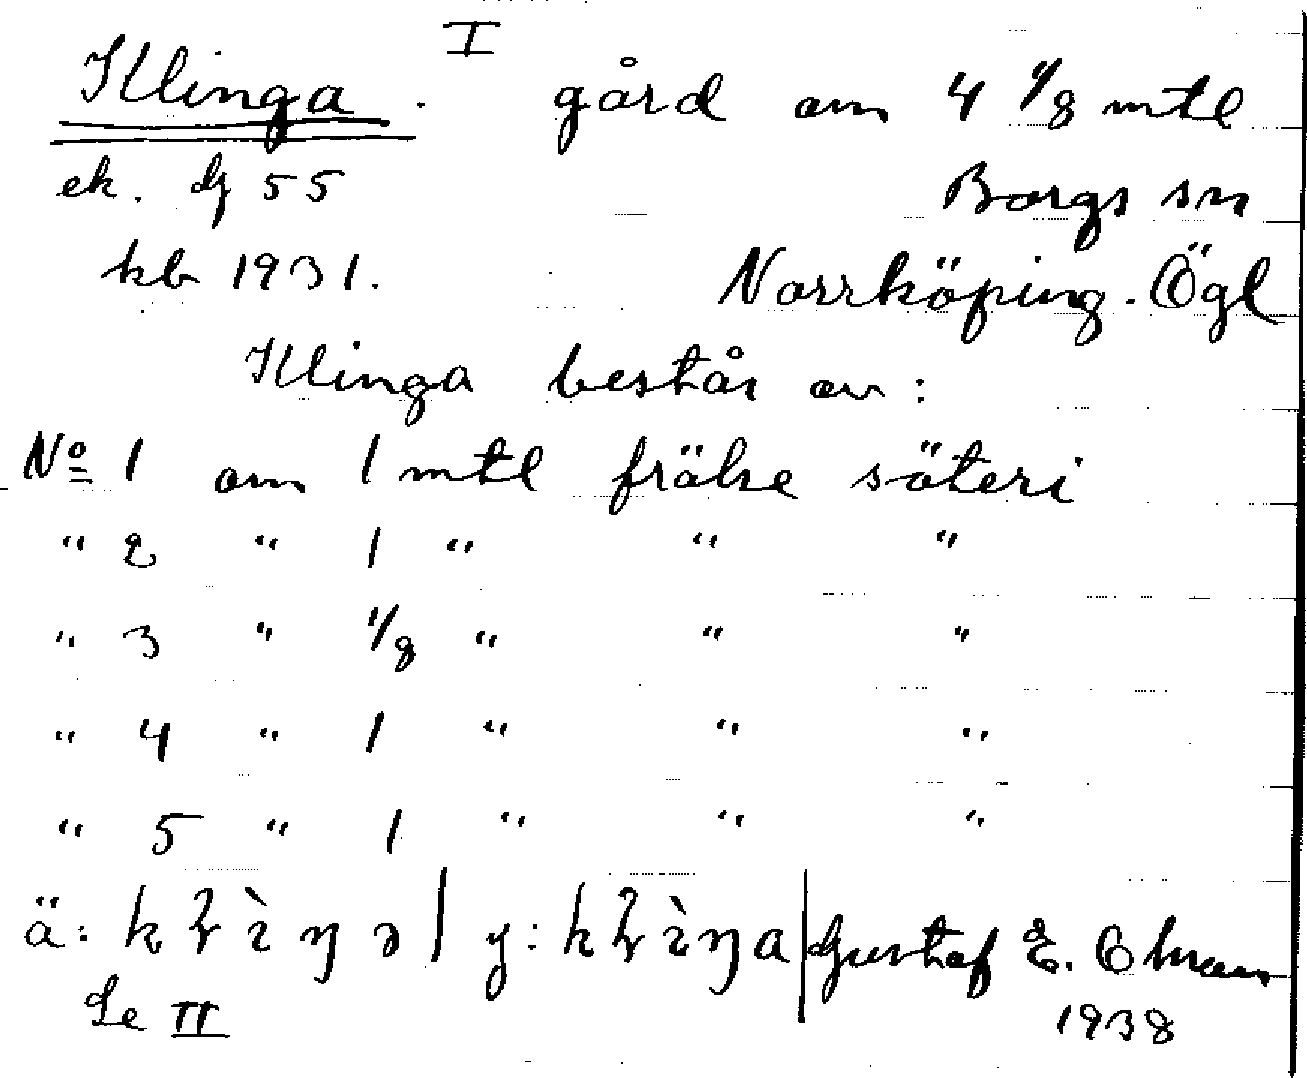 I
Klinga. gård om 4 1/8 mtl
ek. dj 55 Borgs sn
kb 1931. Norrköping. Ögl
Klinga består av:
No 1 om 1 mtl frälse säteri
" 2 " 1 " " "
" 3 " 1/8 " " "
" 4 " 1 " " "
" 5 " 1 " " "
ä: y: Gustaf E.
Se II 1938